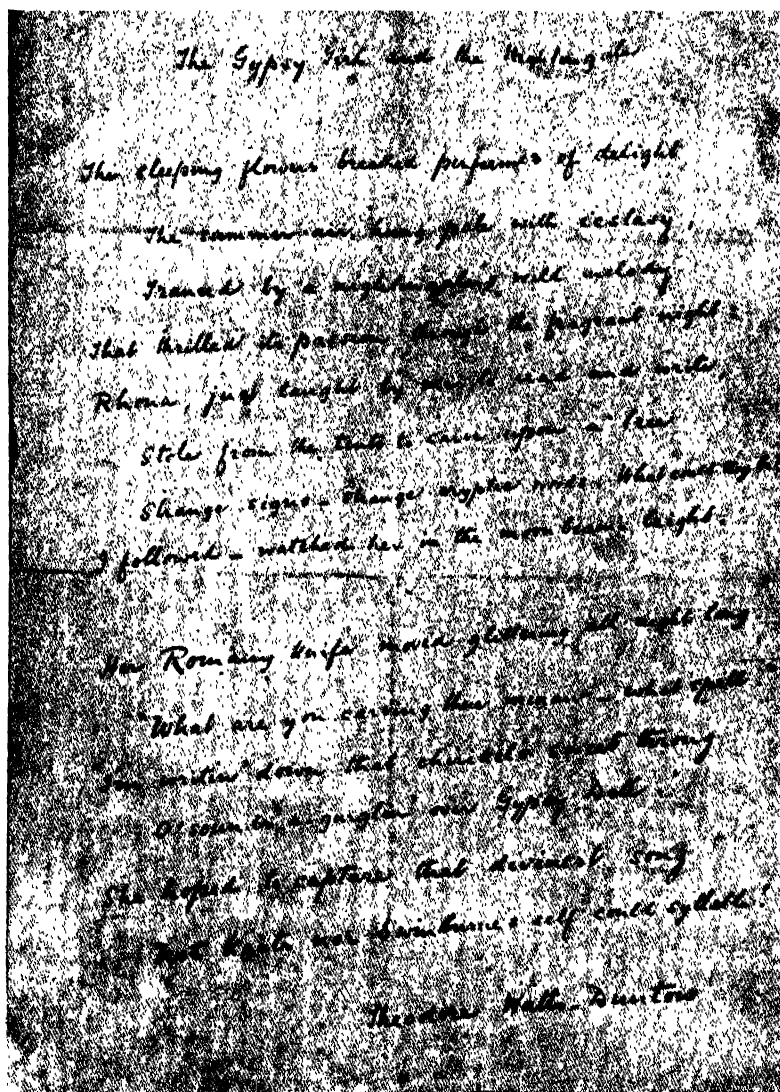 The Gypsy Girl and the Nightingale
The sleeping flowers breathed perfumes of delight
The summer air hung with ecstasy,
Tranced by a with melody
That thrilled its passion through the fragrant night:
Rhona, just taught by to read and write,
Stole from the tents to carve upon a tree
Strange signs – strange cryptic words. What could they be?
I followed – watched her in the moon beams bright.
Her Romany knife moved glittering all night long,
"What are you carving there – what spell
down that sweet throng
our Gypsy Dell
She hoped to capture that divinest song
Not Keats nor Swinburne's self could syllable!
Theodore Watts-Dunton